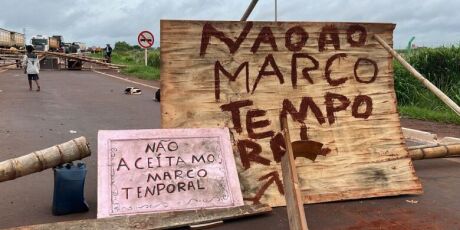 NAO AO
MARCO
TEMPO
RA
NÃO
ACEÍTAMO
MARCO
TENPORAL